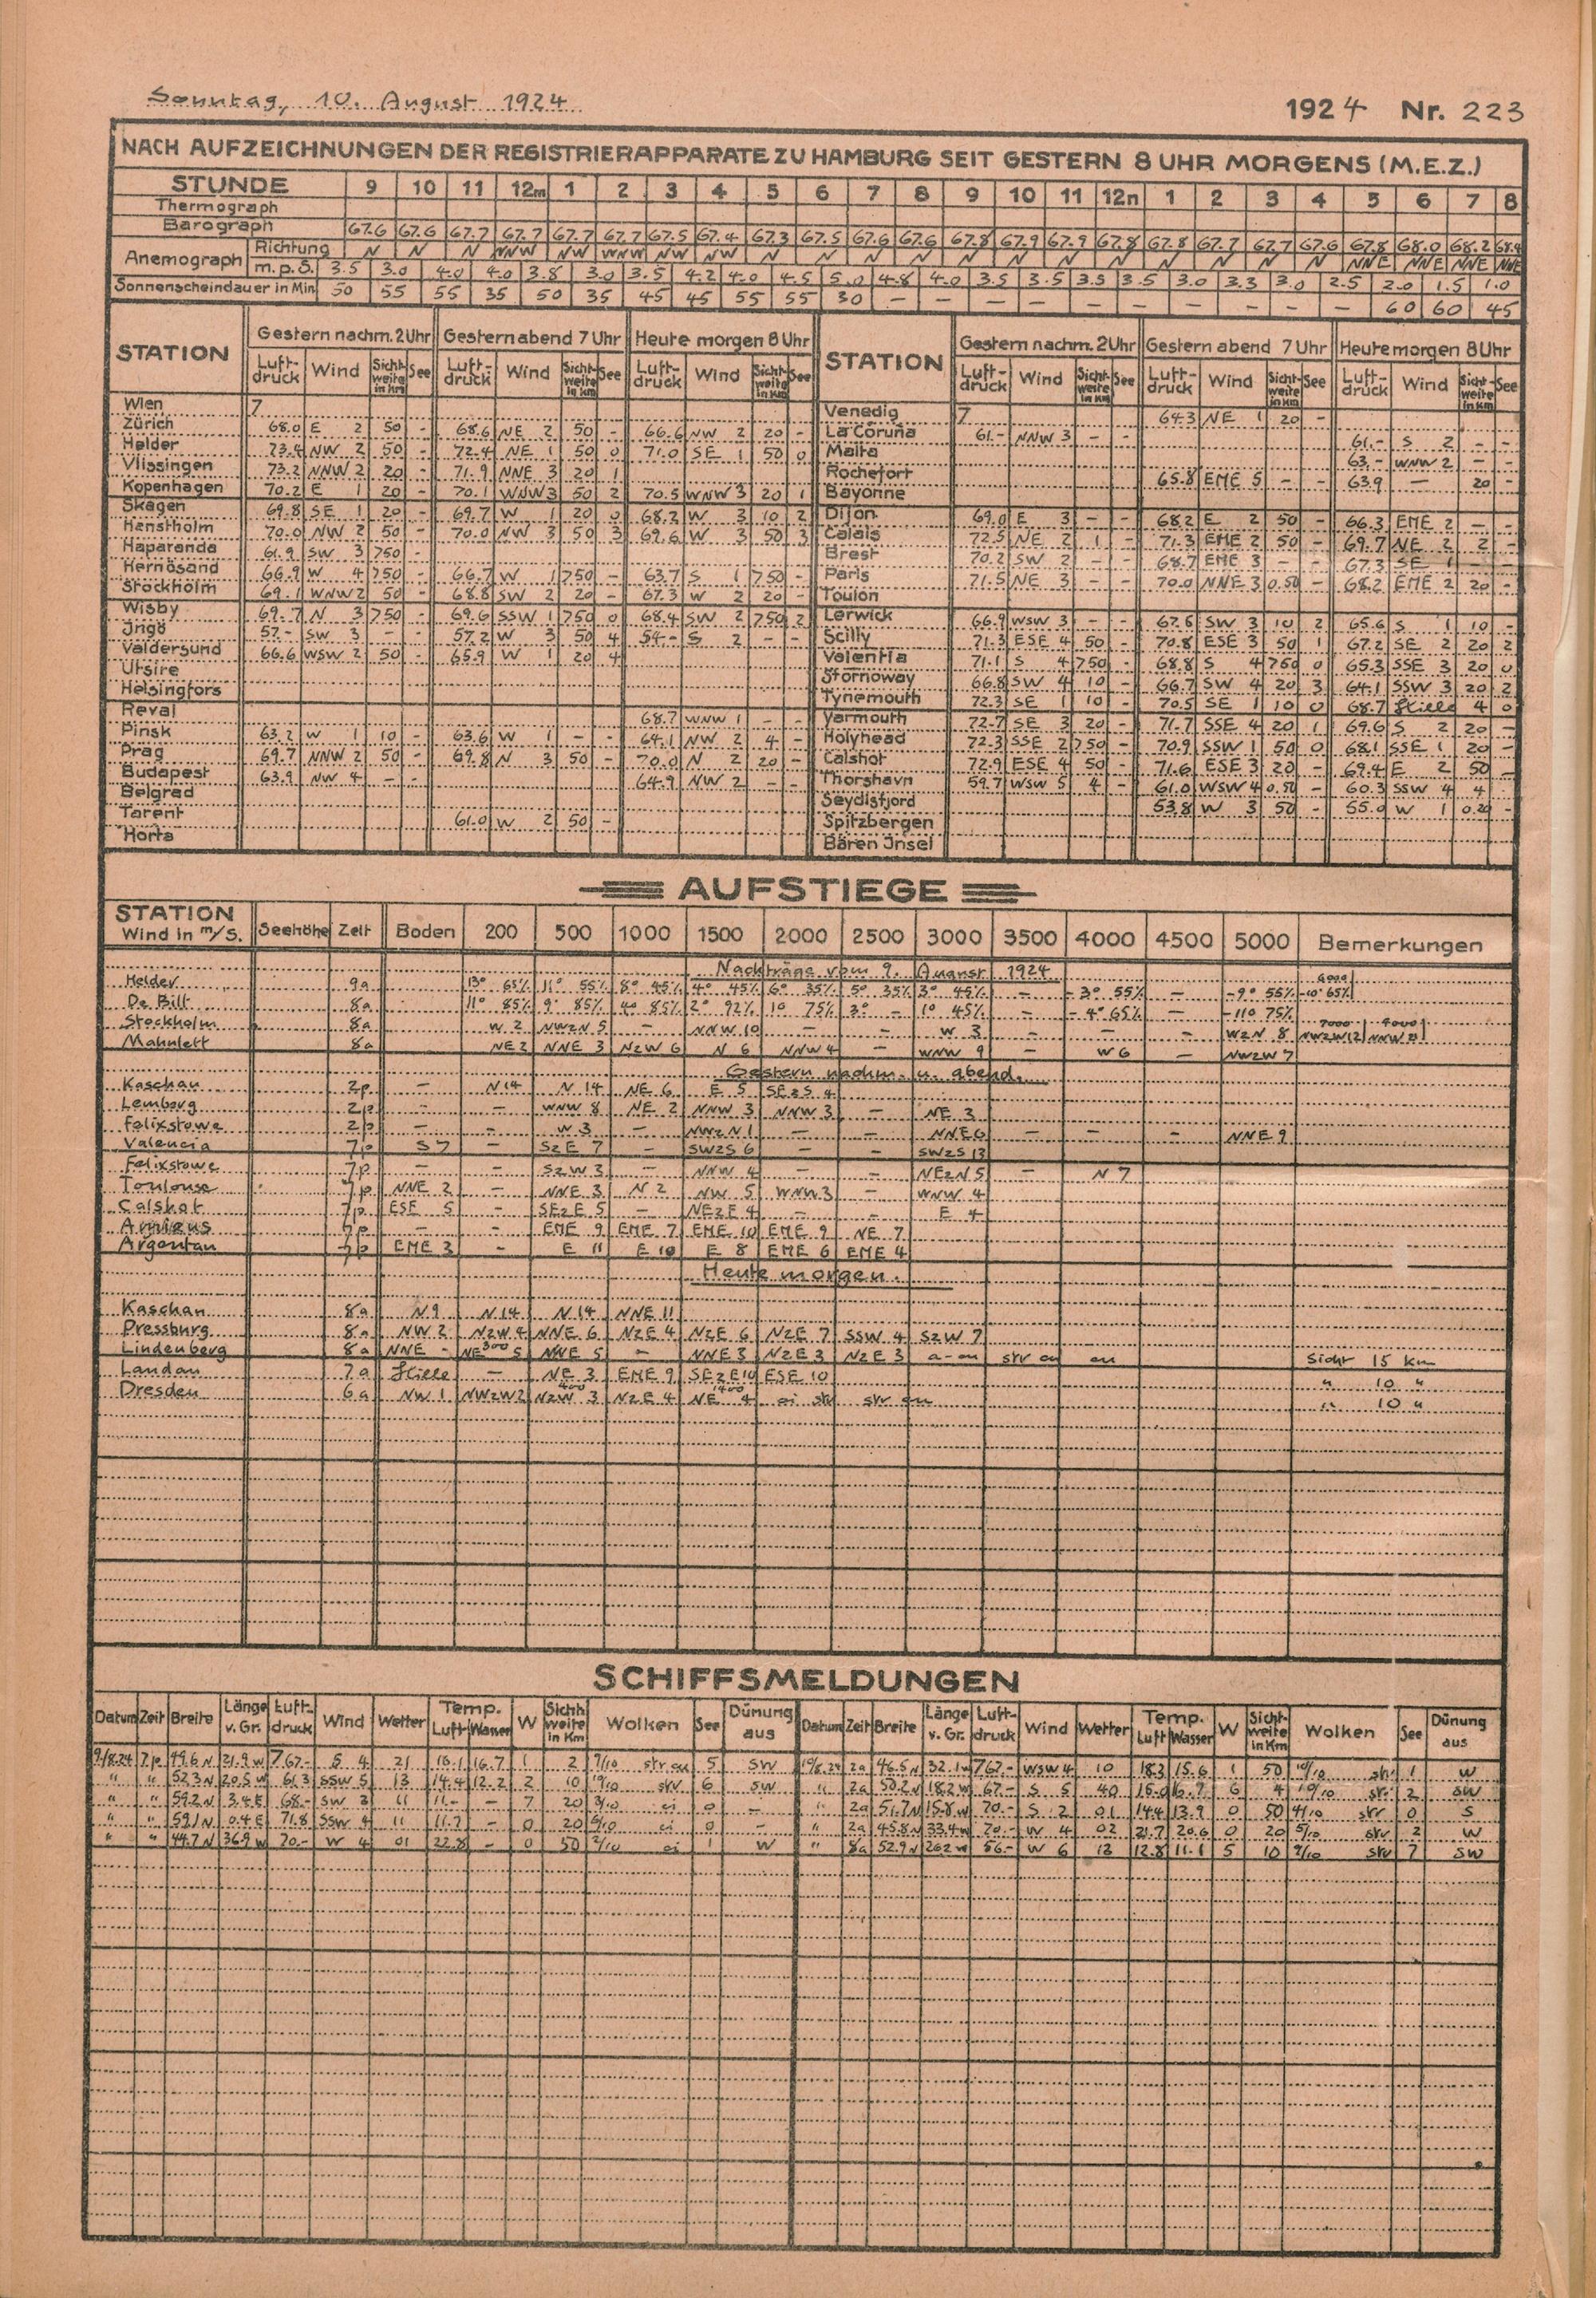 Sonntag, 10. August 1924
1924 Nr. 223
NACH AUFZEICHNUNGEN DER REGISTRIERAPPARATE ZU HAMBURG SEIT GESTERN 8 UHR MORGENS (M.E.Z.)
STUNDE 9 10 11 12m 1 2 3 4 5 6 7 8 9 10 11 12n 1 2 3 4 5 6 7 8
Thermograph
Barograph 67.6 67.6 67.7 67.7 67.7 67.7 67.5 67.4 67.3 67.5 67.6 67.6 67.8 67.9 67.9 67.8 67.8 67.7 67.7 67.6 67.8 68.0 68.2 68.4
Anemograph Richtung N N N NNW NW WNW NW NW N N N N N N N N N N N N NNE NNE NNE NNE
m.p.S. 3.5 3.0 4.0 4.0 3.8 3.0 3.5 4.2 4.0 4.5 5.0 4.8 4.0 3.5 3.5 3.5 3.5 3.0 3.3 3.0 2.5 2.0 1.5 1.0
Sonnenscheindauer in Min 50 55 55 35 50 35 45 45 55 55 30 — — — — — — — — — — 60 60 45
STATION Gestern nachm. 2 Uhr Gestern abend 7 Uhr Heute morgen 8 Uhr STATION Gestern nachm. 2 Uhr Gestern abend 7 Uhr Heute morgen 8 Uhr
Luft-druck Wind Sicht-weite in Km See Luft-druck Wind Sicht-weite in Km See Luft-druck Wind Sicht-weite in Km See Luft-druck Wind Sicht-weite in Km See Luft-druck Wind Sicht-weite in Km See Luft-druck Wind Sicht-weite in Km See
Wien 7 Venedig 7 64.3 NE 1 20 -
Zürich 68.0 E 2 50 - 68.6 NE 2 50 - 66.6 NW 2 20 - La Coruña 61.- NNW 3 - - 61.- S 2 - -
Helder 73.4 NW 2 50 - 72.4 NE 1 50 0 71.0 SE 1 50 0 Malta 63.- WNW 2 - -
Vlissingen 73.2 NNW 2 20 - 71.9 NNE 3 20 1 Rochefort 65.8 EME 5 - - 63.9 — 20 -
Kopenhagen 70.2 E 1 20 - 70.1 WNW 3 50 2 70.5 WNW 3 20 1 Bayonne
Skagen 69.8 SE 1 20 - 69.7 W 1 20 0 68.2 W 3 10 2 Dijon 69.0 E 3 - - 68.2 E 2 50 - 66.3 EME 2 - -
Hanstholm 70.0 NW 2 50 - 70.0 NW 3 50 3 69.6 W 3 50 3 Calais 72.5 NE 2 1 - 71.3 EME 2 50 - 69.7 NE 2 2 -
Haparanda 61.9 SW 3 750 - Brest 70.2 SW 2 - - 68.7 EME 3 - - 67.3 SE 1 - -
Hernösand 66.9 W 4 750 - 66.7 W 1 750 - 63.7 S 1 750 - Paris 71.5 NE 3 - - 70.0 NNE 3 0.50 - 68.2 EME 2 20 -
Stockholm 69.1 WNW 2 50 - 68.8 SW 2 20 - 67.3 W 2 20 - Toulon
Wisby 69.7 N 3 750 - 69.6 SSW 1 750 0 68.4 SW 2 750 2 Lerwick 66.9 WSW 3 - - 67.6 SW 3 10 2 65.6 S 1 10 -
Ingö 57- SW 3 - - 57.2 W 3 50 4 54- S 2 - - Scilly 71.3 ESE 4 50 - 70.8 ESE 3 50 1 67.2 SE 2 20 2
Valdersund 66.6 WSW 2 50 - 65.9 W 1 20 4 Valentia 71.1 S 4 750 - 68.8 S 4 750 0 65.3 SSE 3 20 0
Utsire Stornoway 66.8 SW 4 10 - 66.7 SW 4 20 3 64.1 SSW 3 20 2
Helsingfors Tynemouth 72.3 SE 1 10 - 70.5 SE 1 10 0 68.7 Stille 4 0
Reval 68.7 WNW 1 - - Yarmouth 72.7 SE 3 20 - 71.7 SSE 4 20 1 69.6 S 2 20 -
Pinsk 63.2 W 1 10 - 63.6 W 1 - - 64.1 NW 2 4 - Holyhead 72.3 SSE 2 750 - 70.9 SSW 1 50 0 68.1 SSE 1 20 -
Prag 69.7 NNW 2 50 - 69.8 N 3 50 - 70.0 N 2 20 - Calshot 72.9 ESE 4 50 - 71.6 ESE 3 20 - 69.4 E 2 50 -
Budapest 63.9 NW 4 - - 64.9 NW 2 - - Thorshavn 59.7 WSW 5 4 - 61.0 WSW 4 0.50 - 60.3 SSW 4 4
Belgrad Seydisfjord 53.8 W 3 50 - 55.0 W 1 0.20 -
Tarent 61.0 W 2 50 - Spitzbergen
Horta Bären Insel
AUFSTIEGE
STATION Wind in m/S. Seehöhe Zeit Boden 200 500 1000 1500 2000 2500 3000 3500 4000 4500 5000 Bemerkungen
Nachträge vom 9. August 1924
Helder 9a 13° 65% 11° 55% 8° 45% 4° 45% 6° 35% 5° 35% 3° 45% — -3° 55% — -9° 55% 6000 -10° 65%
De Bilt 8a 11° 85% 9° 85% 4° 85% 2° 92% 1° 75% 2° - 1° 45% — -4° 65% — -11° 75%
Stockholm 8a W 2 NWzN 5 - NNW 10 - - W 3 - - - WzN 8 7000 NWzW 12 9000
Mahnlett 8a NE 2 NNE 3 NzW 6 N 6 NNW 4 - WNW 9 - W 6 - NWzW 7
Gestern nachm. u. abend.
Kaschau 2p - N 14 N 14 NE 6 E 5 SEzS 4
Lemberg 2p - - WNW 8 NE 2 NNW 3 NNW 3 - NE 3
Felixstowe 2p - - W 3 - NWzN 1 - - NNE 6 - - - NNE 9
Valencia 7p S 7 - SzE 7 - SWzS 6 - - SWzS 13
Felixstowe 7p - - SzW 3 - NNW 4 - - NEzN 5 - N 7
Toulouse 7p NNE 2 - NNE 3 N 2 NW 5 WNW 3 - WNW 4
Calshot 7p ESE 5 - SEzE 5 - NEzE 4 - - E 4
Amiens 7p - - EME 9 EME 7 EME 10 EME 9 NE 7
Argentan 7p EME 3 - E 11 E 10 E 8 EME 6 EME 4
Heute morgen.
Kaschau 8a N 9 N 14 N 14 NNE 11
Pressburg 8a NW 2 NzW 4 NNE 6 NzE 4 NzE 6 NzE 7 SSW 4 SzW 7
Lindenberg 8a NNE - NE 300 5 NNE 5 - NNE 3 NzE 3 NzE 3 a-cu str cu cu Sicht 15 Km
Landau 7a Stille - NE 3 EME 9 SEzE 10 ESE 10 " 10 "
Dresden 6a NW 1 NWzW 2 NzW 400 3 NzE 4 NE 1400 4 ci str str cu " 10 "
SCHIFFSMELDUNGEN
Datum Zeit Breite Länge v. Gr. Luft-druck Wind Wetter Temp. Luft Wasser W Sicht-weite in Km Wolken See Dünung aus Datum Zeit Breite Länge v. Gr. Luft-druck Wind Wetter Temp. Luft Wasser W Sicht-weite in Km Wolken See Dünung aus
9/8.24 7p 49.6 N 21.9 W 767.- S 4 21 16.1 16.7 1 2 9/10 str cu 5 SW 10/8.24 2a 46.5 N 32.1 W 767.- WSW 4 10 18.3 15.6 1 50 10/10 str 1 W
" " 52.3 N 20.5 W 61.3 SSW 5 13 14.4 12.2 2 10 10/10 str 6 SW " 2a 50.2 N 18.2 W 67.- S 5 40 15.0 16.7 6 4 10/10 str 2 SW
" " 59.2 N 3.4 E 68.- SW 3 11 11.- - 7 20 3/10 ci 0 - " 2a 51.7 N 15.8 W 70.- S 2 01 14.4 13.9 0 50 4/10 str 0 S
" " 59.1 N 0.4 E 71.8 SSW 4 11 11.7 - 0 20 6/10 ci 0 - " 2a 45.8 N 33.4 W 70.- W 4 02 21.7 20.6 0 20 5/10 str 2 W
" " 44.7 N 36.9 W 70.- W 4 01 22.8 - 0 50 2/10 ci 1 W " 8a 52.9 N 26.2 W 56.- W 6 13 12.8 11.1 5 10 9/10 str 7 SW